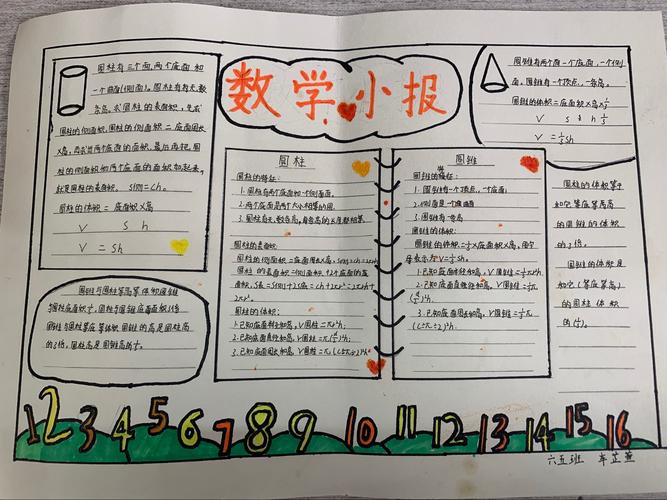 数学小报
圆柱有三个面,两个底面和
一个曲面(侧面)。圆柱有无数
条高。求圆柱的表面积,先求
圆柱的侧面积,圆柱的侧面积=底面周长
×高,再求出两个底面的面积,最后再把圆
柱的侧面积和两个底面的面积加起来,
就是圆柱的表面积。S侧=ch。
圆柱的体积=底面积×高
V S h
V = Sh
圆锥有两个面一个底面,一个侧
面。圆锥有一个顶点,一条高。
圆锥的体积=底面积×高×1/3
V S h 1/3
V=1/3Sh
圆柱
圆柱的特征:
1.圆柱有两个底面和一个侧面。
2.两个底面是两个大小相等的圆。
3.圆柱有无数条高,每条高的长度都相等。
圆柱的表面积:
圆柱的侧面积=底面周长×高,S侧=ch=2πrh
圆柱的表面积=侧面积+2个底面的底
面积,S表=S侧+2S底=ch+2πr²=2πrh+
2πr²。
圆柱的体积:
1.已知底面半径和高,V圆柱=πr²h;
2.已知底面直径和高,V圆柱=π(d/2)²h;
3.已知底面周长和高,V圆柱=π(c÷π÷2)²h。
圆锥
圆锥的特征:
1.圆锥有一个顶点,一个底面;
2.侧面是一个曲面
3.圆锥有一条高
圆锥的体积:
圆锥的体积=1/3×底面积×高,用字
母表示为V=1/3Sh。
1.已知底面半径和高,V圆锥=1/3πr²h。
2.已知底面直径和高,V圆锥=1/3π
(d/2)²h。
3.已知底面周长和高,V圆锥=1/3π
(c÷π÷2)²h。
圆柱的体积等于
和它等底等高
的圆锥的体积
的3倍。
圆锥的体积是
和它(等底等高)
的圆柱体积
的(1/3)。
圆锥与圆柱等高等体积圆锥
的3倍,圆柱高是圆锥高的1/3。
1 2 3 4 5 6 7 8 9 10 11 12 13 14 15 16
六五班